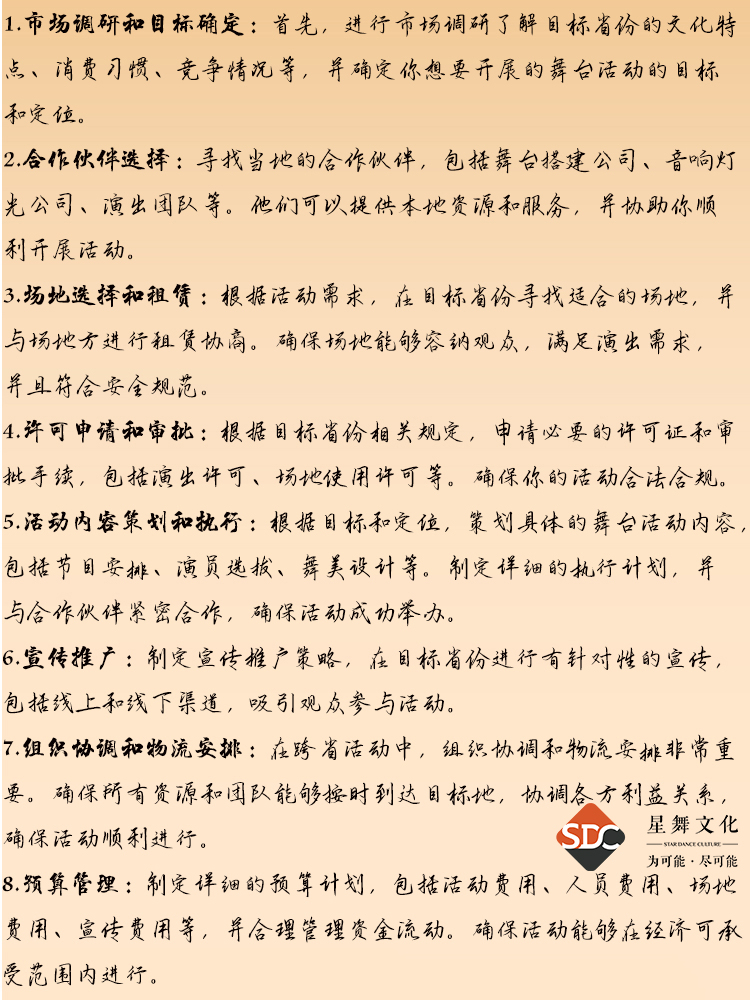 1.市场调研和目标确定：首先，进行市场调研了解目标省份的文化特
点、消费习惯、竞争情况等，并确定你想要开展的舞台活动的目标
和定位。
2.合作伙伴选择：寻找当地的合作伙伴，包括舞台搭建公司、音响灯
光公司、演出团队等。他们可以提供本地资源和服务，并协助你顺
利开展活动。
3.场地选择和租赁：根据活动需求，在目标省份寻找适合的场地，并
与场地方进行租赁协商。确保场地能够容纳观众，满足演出需求，
并且符合安全规范。
4.许可申请和审批：根据目标省份相关规定，申请必要的许可证和审
批手续，包括演出许可、场地使用许可等。确保你的活动合法合规。
5.活动内容策划和执行：根据目标和定位，策划具体的舞台活动内容，
包括节目安排、演员选拔、舞美设计等。制定详细的执行计划，并
与合作伙伴紧密合作，确保活动成功举办。
6.宣传推广：制定宣传推广策略，在目标省份进行有针对性的宣传，
包括线上和线下渠道，吸引观众参与活动。
7.组织协调和物流安排：在跨省活动中，组织协调和物流安排非常重
要。确保所有资源和团队能够按时到达目标地，协调各方利益关系，
确保活动顺利进行。
8.预算管理：制定详细的预算计划，包括活动费用、人员费用、场地
费用、宣传费用等，并合理管理资金流动。确保活动能够在经济可承
受范围内进行。
SDC
星舞文化
STAR DANCE CULTURE
为可能·尽可能